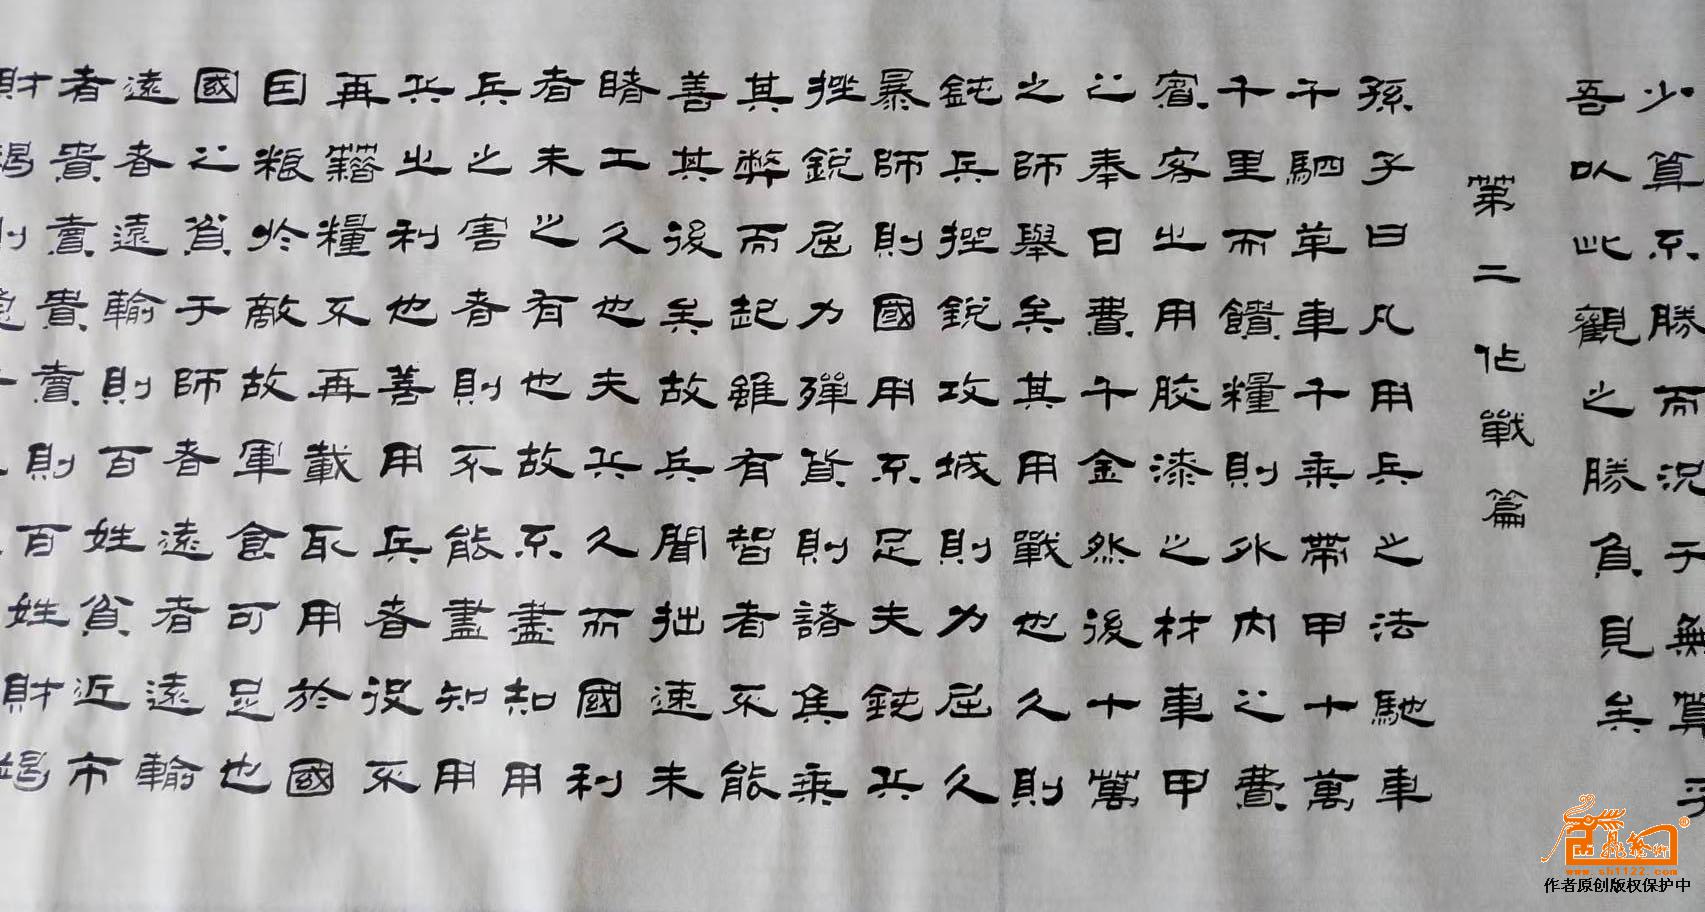 少算不勝而況于無算乎
吾以此觀之勝負見矣
第二作戰篇
孫子曰凡用兵之法馳車
千駟革車千乘帶甲十萬
千里而饋糧則外內之費
賓客之用胶漆之材車甲
之奉日費千金然後十萬
之師舉矣其用戰也久則
鈍兵挫銳攻城則力屈久
暴師則國用不足夫鈍兵
挫銳屈力殫貨則諸侯乘
其弊而起雖有智者不能
善其後矣故兵聞拙速未
睹工久也夫兵久而國利
者未之有也故不盡知用
兵之害者則不能盡知用
兵之利也善用兵者役不
再籍糧不再載取用於國
因粮於敵故軍食可足也
國之貧于師者遠者遠輸
遠者遠輸則百姓貧近市
者貴賣貴賣則百姓財竭
財竭
www.sh1122.com
作者原创版权保护中